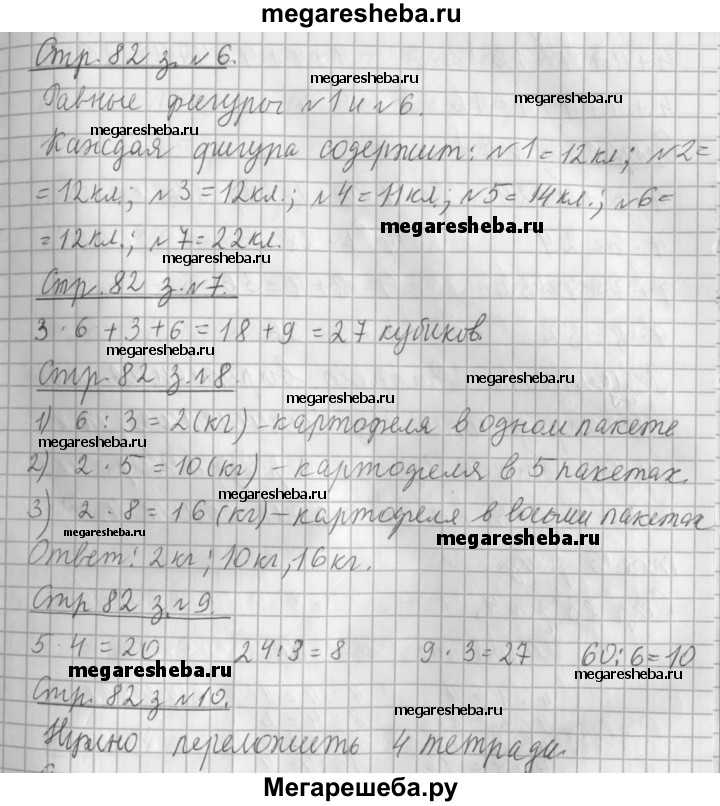 megaresheba.ru
Стр. 82 з. №6.
megaresheba.ru
megaresheba.ru
Равные фигуры №1 и №6.
megaresheba.ru
Каждая фигура содержит: №1=12кл; №2=
=12кл.; №3=12кл.; №4=11кл.; №5=14кл.; №6=
megaresheba.ru
=12кл.; №7=22кл.
megaresheba.ru
Стр. 82 з. №7.
3 · 6 + 3 + 6 = 18 + 9 = 27 кубиков
megaresheba.ru
Стр. 82 з. №8.
megaresheba.ru
megaresheba.ru
1) 6 : 3 = 2 (кг) – картофеля в одном пакете
megaresheba.ru
2) 2 · 5 = 10 (кг) – картофеля в 5 пакетах.
megaresheba.ru
3) 2 · 8 = 16 (кг) – картофеля в восьми пакетах
megaresheba.ru
megaresheba.ru
Ответ: 2 кг; 10 кг, 16 кг.
Стр 82 з. №9.
megaresheba.ru
5 · 4 = 20 24 : 3 = 8 9 · 3 = 27 60 : 6 = 10
megaresheba.ru
megaresheba.ru
Стр. 82 з №10.
megaresheba.ru
Нужно переложить 4 тетради.
megaresheba.ru
Мегарешеба.ру